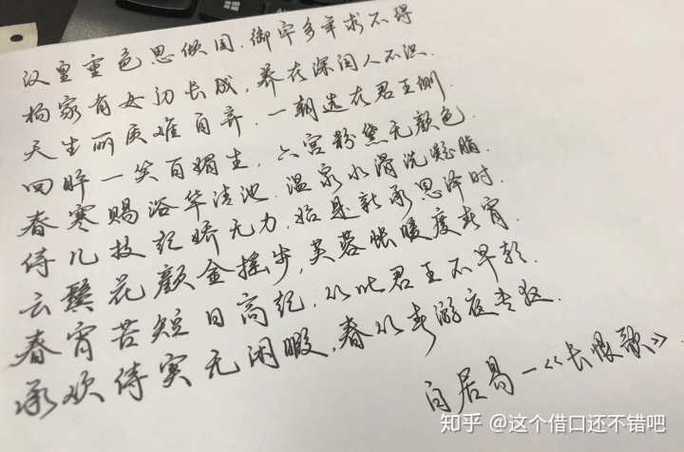 汉皇重色思倾国，御宇多年求不得
杨家有女初长成，养在深闺人不识.
天生丽质难自弃.一朝选在君王侧.
回眸一笑百媚生，六宫粉黛无颜色.
春寒赐浴华清池.温泉水滑洗凝脂.
侍儿扶起娇无力，始是新承恩泽时.
云鬓花颜金摇步，芙蓉帐暖度春宵.
春宵苦短日高起，从此君王不早朝.
承欢侍宴无闲暇，春从春游夜专夜.
白居易一《长恨歌》.
知乎 @这个借口还不错吧